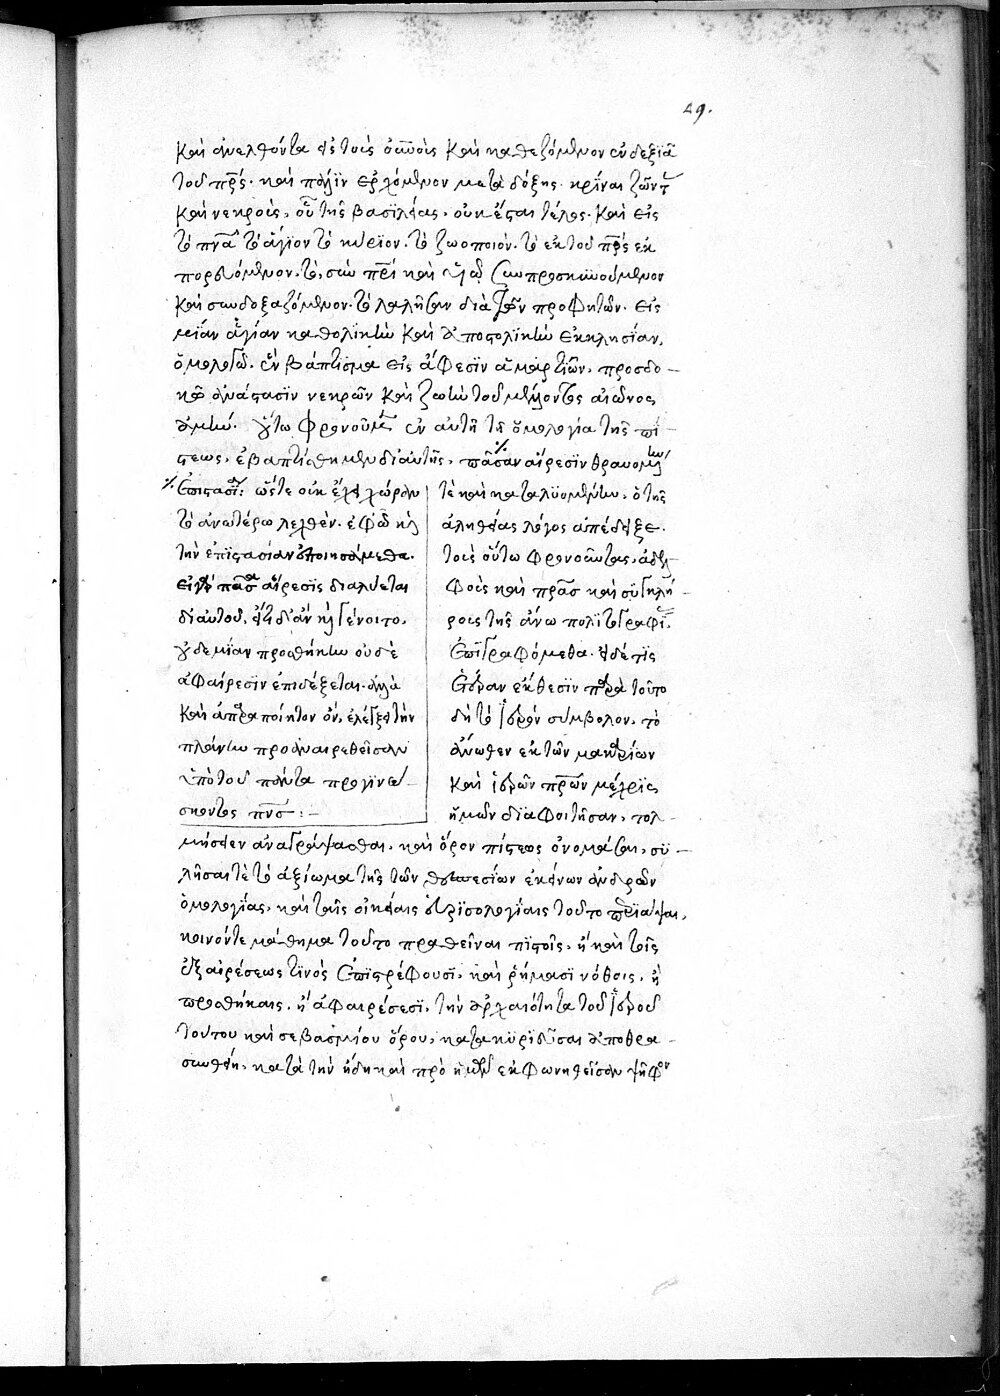 29.
καὶ ἀνελθόντα εἰς τοὺς οὐνοὺς καὶ καθεζόμενον ἐν δεξιᾶ
τοῦ πρς· καὶ πάλιν ἐρχόμενον μετὰ δόξης· κρῖναι ζῶντ
καὶ νεκροὺς, οὗ τῆς βασιλείας, οὐκ ἔσται τέλος· καὶ εἰς
τὸ πνα τὸ ἅγιον τὸ κύριον· τὸ ζωοποιὸν· τὸ ἐκ τοῦ πρς ἐκ
πορευόμενον, τὸ, σὺν πρι καὶ υἱῶ συμπροσκυνούμενον
καὶ συνδοξαζόμενον· τὸ λαλῆσαν διὰ τῶν προφητῶν· εἰς
μίαν ἁγίαν καθολικὴν καὶ ἀποστολικὴν ἐκκλησίαν,
ὁμολογῶ· ἓν βάπτισμα εἰς ἄφεσιν ἁμαρτιῶν, προσδο-
κῶ ἀνάστασιν νεκρῶν καὶ ζωὴν τοῦ μέλλοντος αἰῶνος
ἀμήν· οὕτω φρονοῦντ ἐν αὐτῆ τῆ ὁμολογία τῆς πί-
στεως, ἐβαπτίσθημεν δι' αὐτῆς, πᾶσαν αἵρεσιν θραυομένην
Ἐπιστασί: ὥστε οὐκ ἔχει χώραν
τὸ ἀνωτέρω λεχθὲν· ἐφ' ᾧ καὶ
τὴν ἐπιστασίαν ἐποιησάμεθα·
εἰ γὰρ πᾶσα αἵρεσις διαλύεται
δι' αὐτοῦ, ἔτι δ' ἂν καὶ γένοιτο,
οὐδεμίαν προσθήκην οὐδὲ
ἀφαίρεσιν ἐπιδέξεται· ἀλλὰ
καὶ ἀπαραποίητον ὂν, ἐλέγξει τὴν
πλάνην προαναιρεθεῖσαν
ὑπὸ τοῦ πάντα προγινώ-
σκοντος πνς :-
τὲ καὶ καταλυομένην, ὁ τῆς
ἀληθείας λόγος ἀπέδειξε·
τοὺς οὕτω φρονοῦντας, ἀδελ-
φοὺς καὶ πρας καὶ συγκλή-
ρους τῆς ἄνω πολιτογραφί,
ἐπιγραφόμεθα· εἰ δέ τις
ἑτέραν ἔκθεσιν παρὰ τοῦτο
δὴ τὸ ἱερὸν σύμβολον, τὸ
ἄνωθεν ἐκ τῶν μακαρίων
καὶ ἱερῶν πρων μέχρις
ἡμῶν διαφοιτῆσαν, τολ-
μήσειεν ἀναγράψασθαι, καὶ ὅρον πίστεως ὀνομάσαι, συ-
λῆσαι τὲ τὸ ἀξίωμα τῆς τῶν θεσπεσίων ἐκείνων ἀνδρῶν
ὁμολογίας, καὶ ταῖς οἰκείαις εὑρισολογίαις τοῦτο περιάψαι,
κοινόν τε μάθημα τοῦτο προθεῖναι πιστοῖς, ἢ καὶ τοῖς
ἐξ αἱρέσεως τινὸς ἐπιστρέφουσι, καὶ ῥήμασι νόθοις, ἢ
προσθήκαις, ἢ ἀφαιρέσεσι, τὴν ἀρχαιότητα τοῦ ἱεροῦ
τούτου καὶ σεβασμίου ὅρου, κατακιβδηλεῦσαι ἀποθρα-
συνθείη, κατὰ τὴν ἤδη καὶ πρὸ ἡμῶν ἐκφωνηθεῖσαν ψῆφον